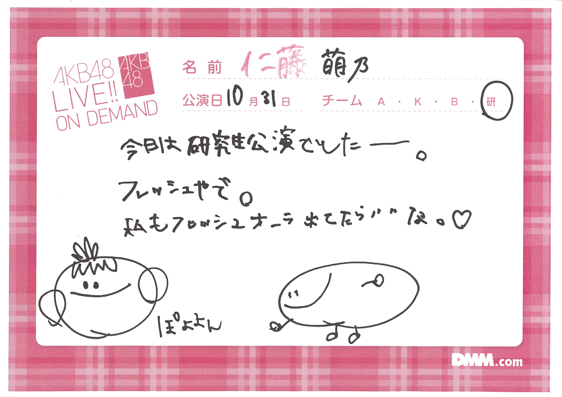 AKB48
LIVE!!
ON DEMAND
AKB
48
名前 仁藤 萌乃
公演日 10月31日 チーム A・K・B・研
今日は研究生公演でしたー。
フレッシュやで。
私もフレッシュオーラ出てたらいいな。♡
ぽよよん
DMM.com